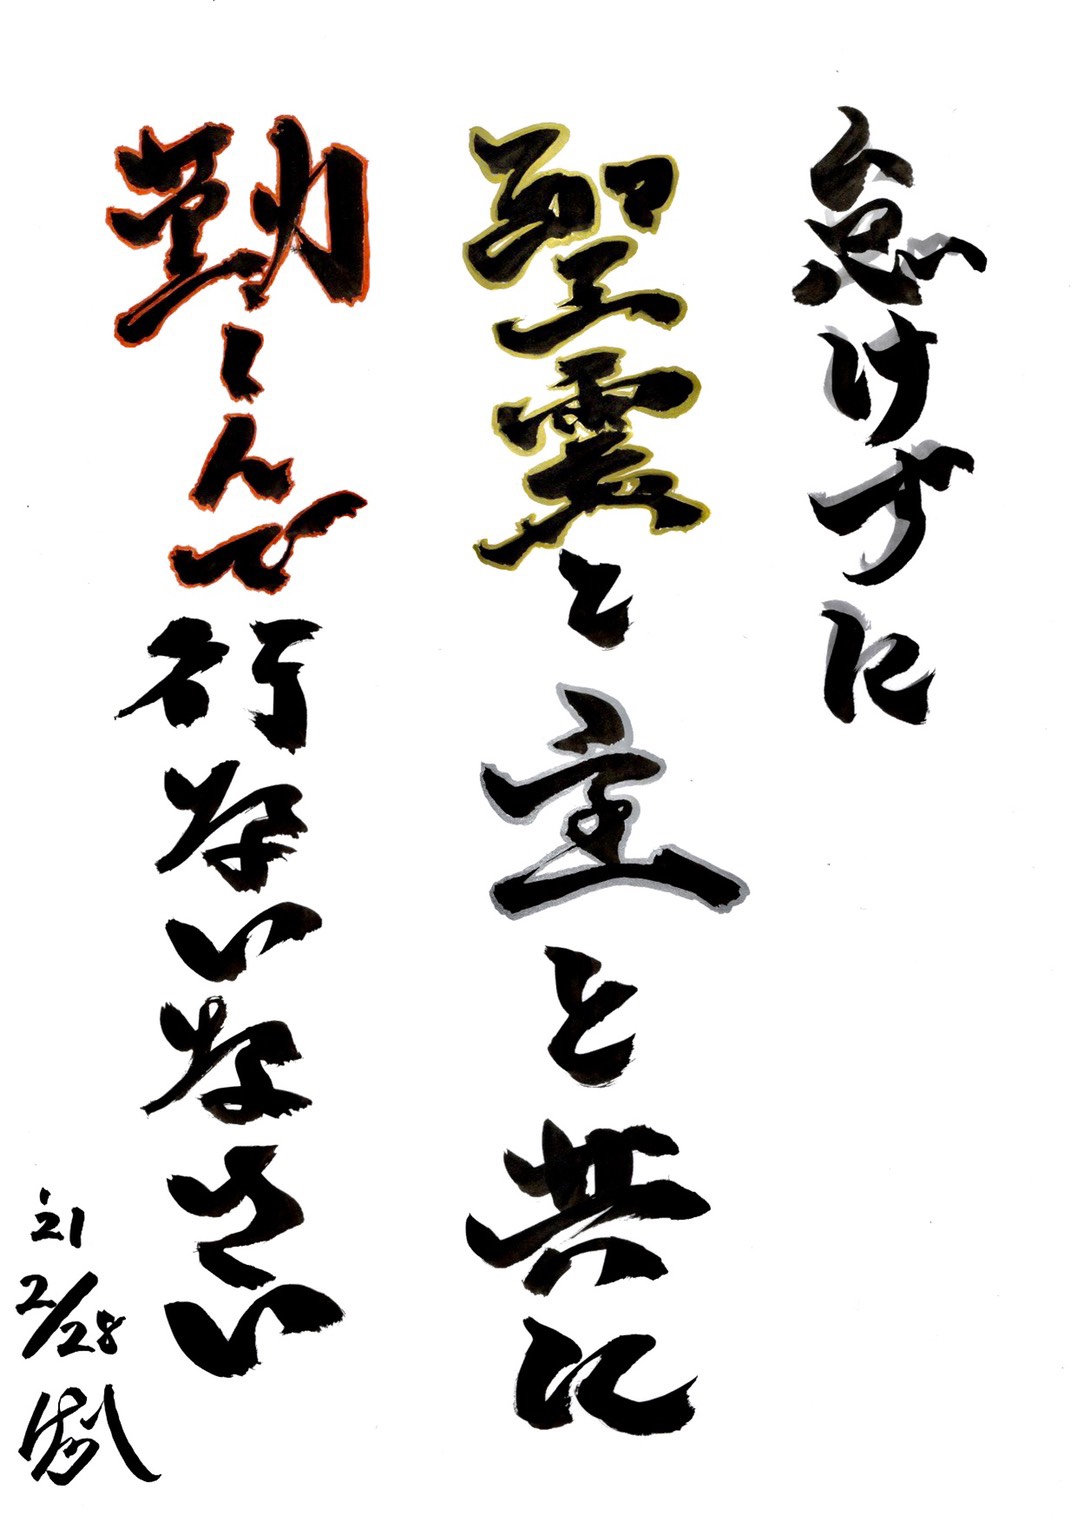 怠けずに
聖霊と主と共に
勤こんで行ないなさい
'21
2/28